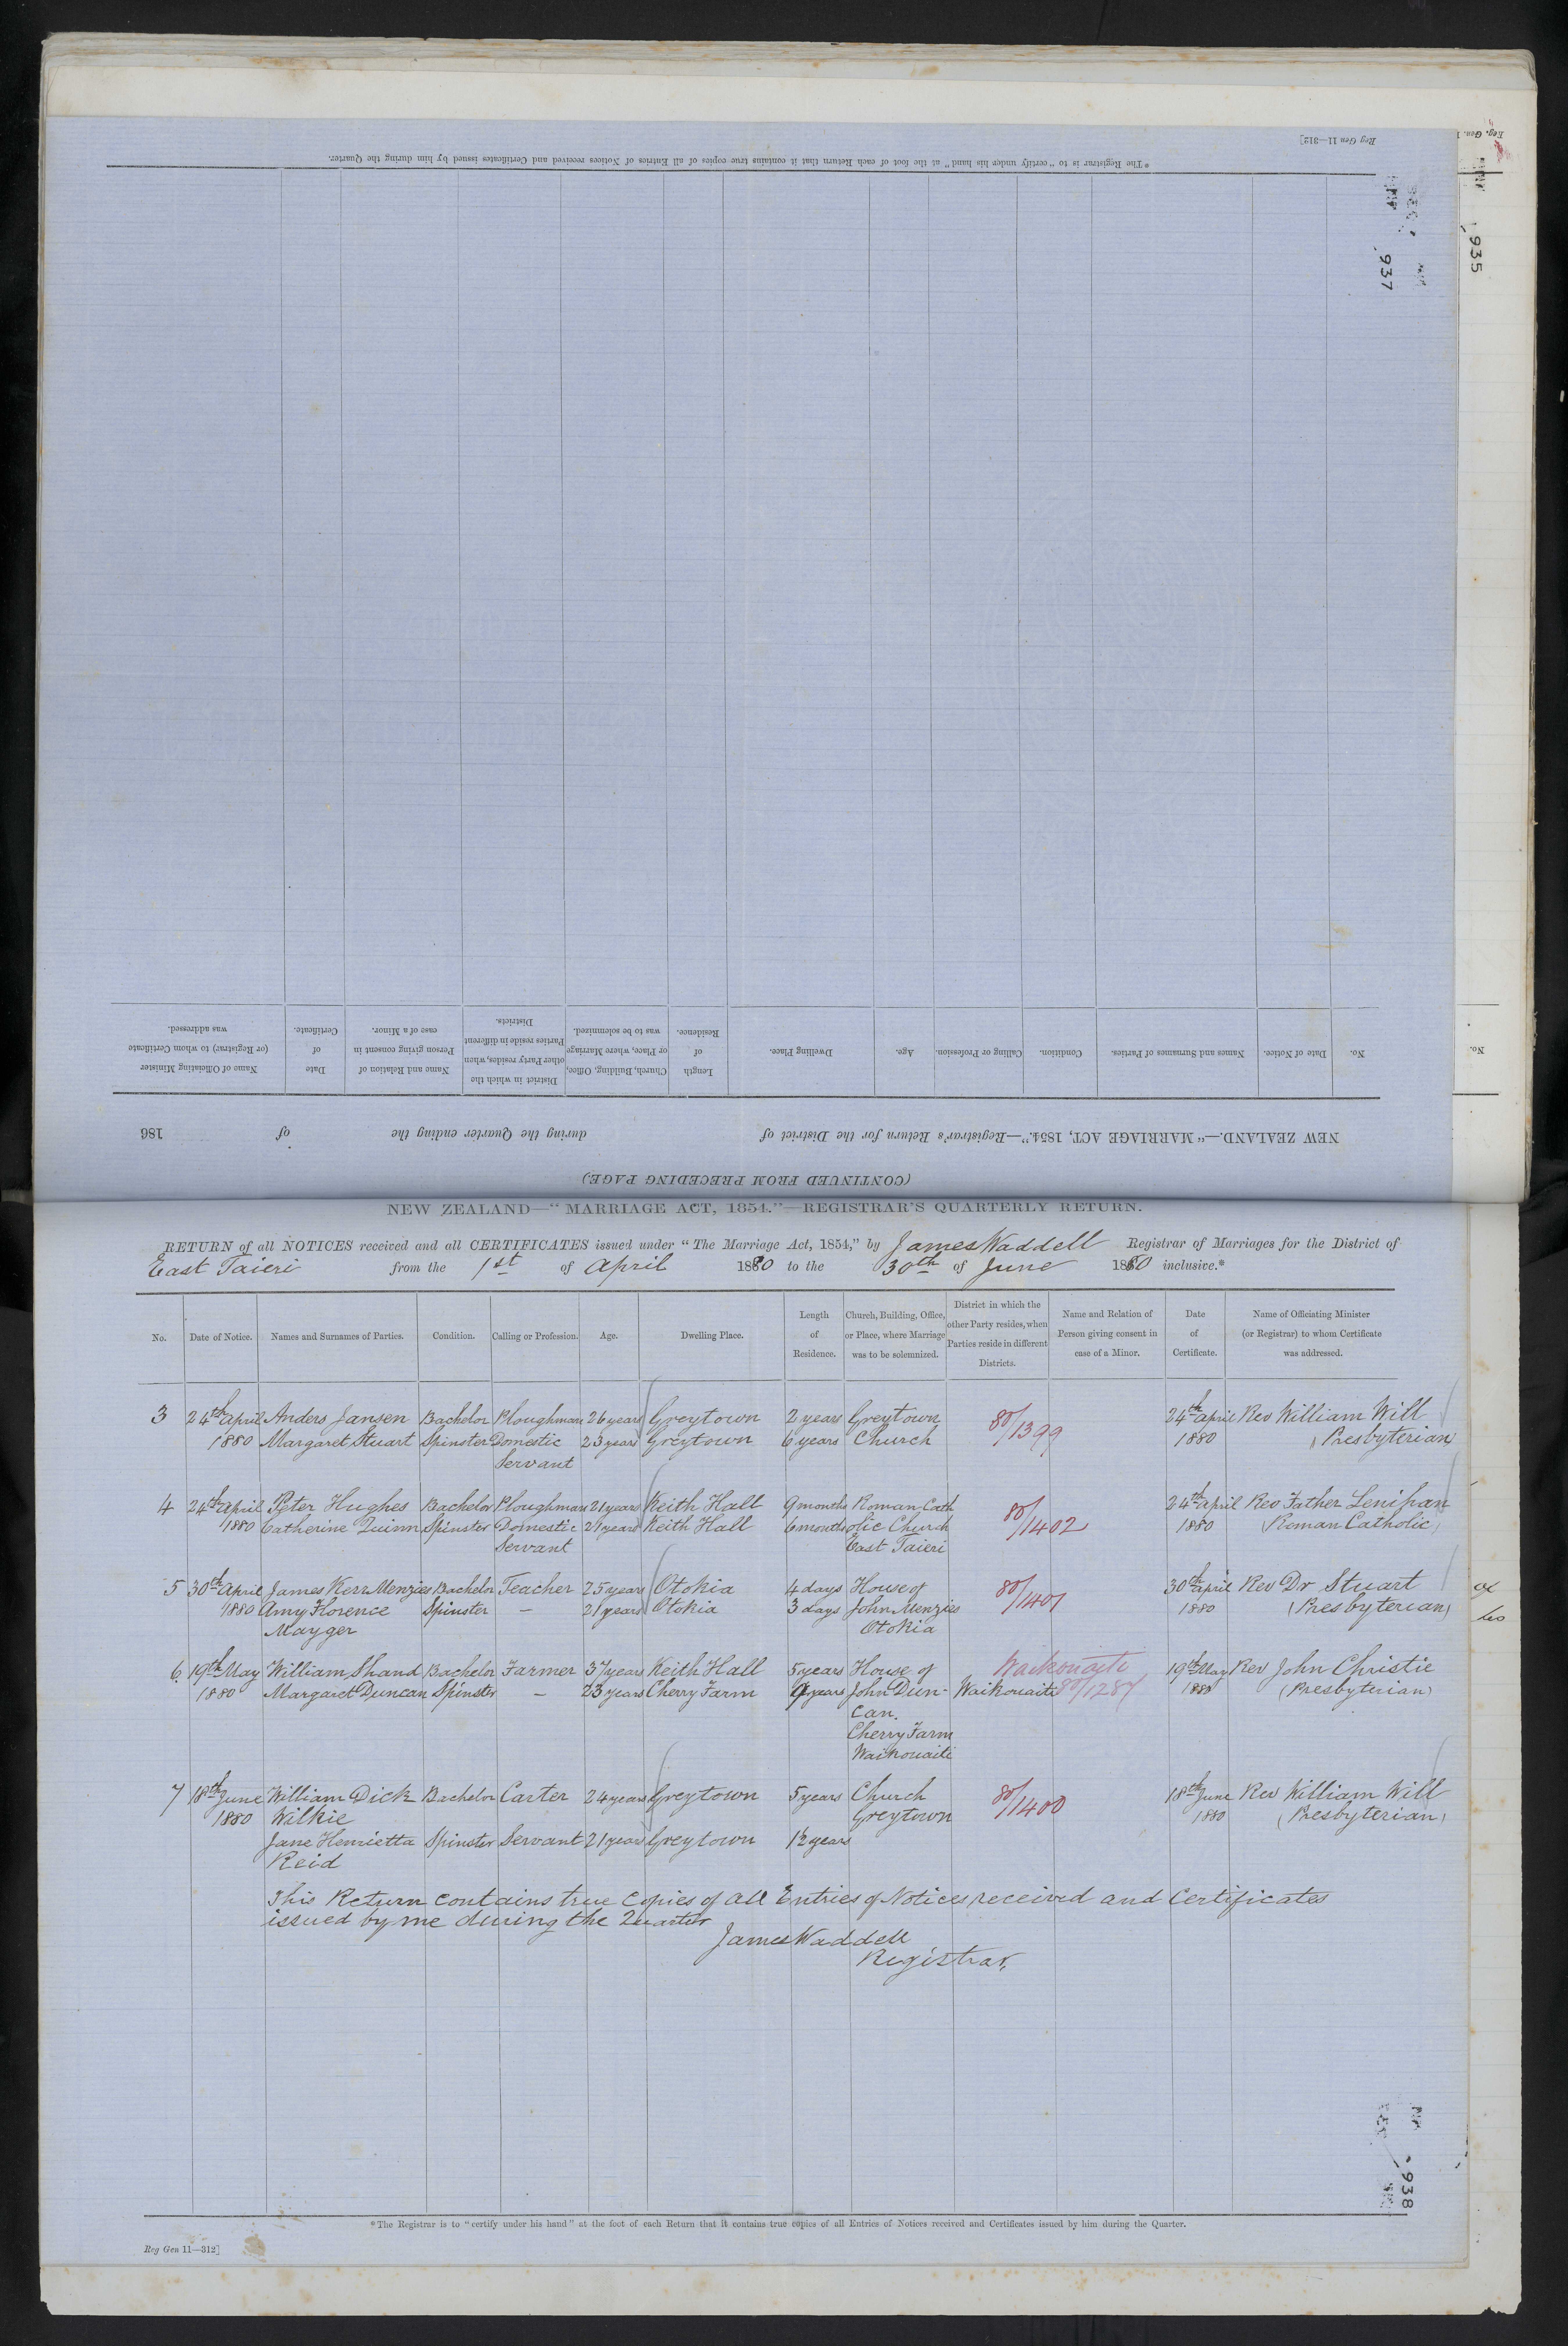 Reg Gen 11—312]
*The Registrar is to "certify under his hand" at the foot of each Return that it contains true copies of all Entries of Notices received and Certificates issued by him during the Quarter.
937
935
No.
Date of Notice.
Names and Surnames of Parties.
Condition.
Calling or Profession.
Age.
Dwelling Place.
Length of Residence.
Church, Building, Office, or Place, where Marriage was to be solemnized.
District in which the other Party resides, when Parties reside in different Districts.
Name and Relation of Person giving consent in case of a Minor.
Date of Certificate.
Name of Officiating Minister (or Registrar) to whom Certificate was addressed.
No.
NEW ZEALAND.—"MARRIAGE ACT, 1854."—Registrar's Return for the District of during the Quarter ending the of 186
(CONTINUED FROM PRECEDING PAGE)
NEW ZEALAND—"MARRIAGE ACT, 1854."—REGISTRAR'S QUARTERLY RETURN.
RETURN of all NOTICES received and all CERTIFICATES issued under "The Marriage Act, 1854," by James Waddell Registrar of Marriages for the District of
East Taieri from the 1st of April 1880 to the 30th of June 1880 inclusive.*
No.
Date of Notice.
Names and Surnames of Parties.
Condition.
Calling or Profession.
Age.
Dwelling Place.
Length of Residence.
Church, Building, Office, or Place, where Marriage was to be solemnized.
District in which the other Party resides, when Parties reside in different Districts.
Name and Relation of Person giving consent in case of a Minor.
Date of Certificate.
Name of Officiating Minister (or Registrar) to whom Certificate was addressed.
3 24th April Anders Jansen Bachelor Ploughman 26 years Greytown 2 years Greytown 80/1399 24th April Rev William Will
1880 Margaret Stuart Spinster Domestic 23 years Greytown 6 years Church 1880 (Presbyterian)
Servant
4 24th April Peter Hughes Bachelor Ploughman 21 years Keith Hall 9 months Roman Cath 80/1402 24th April Rev Father Lenihan
1880 Catherine Quinn Spinster Domestic 21 years Keith Hall 6 months olic Church 1880 (Roman Catholic)
Servant East Taieri
5 30th April James Kerr Menzies Bachelor Teacher 25 years Otokia 4 days House of 80/1401 30th April Rev Dr Stuart
1880 Amy Florence Spinster — 21 years Otokia 3 days John Menzies 1880 (Presbyterian)
Mayger Otokia
6 19th May William Shand Bachelor Farmer 37 years Keith Hall 5 years House of Waikouaiti 19th May Rev John Christie
1880 Margaret Duncan Spinster — 23 years Cherry Farm 9 years John Dun- Waikouaiti 80/1287 1880 (Presbyterian)
can.
Cherry Farm
Waikouaiti
7 18th June William Dick Bachelor Carter 24 years Greytown 5 years Church 80/1400 18th June Rev William Will
1880 Wilkie Greytown 1880 (Presbyterian)
Jane Henrietta Spinster Servant 21 years Greytown 12 years
Reid
This Return contains true copies of all Entries of Notices received and Certificates
issued by me during the Quarter
James Waddell
Registrar.
938
*The Registrar is to "certify under his hand" at the foot of each Return that it contains true copies of all Entries of Notices received and Certificates issued by him during the Quarter.
Reg Gen 11—312]